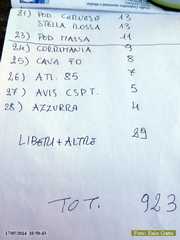 21) POD CERVESO 13
STELLA ROSSA 13
23) POD MASSA 11
24) CORRIMANIA 9
25) CAVA 70 8
26) ATL. 85 7
27) AVIS CSPT. 5
28) AZZURRA 4
LIBERI + ALTRE 29
TOT. 923
17/07/2024 18:59:43
Foto: Enio Gatto